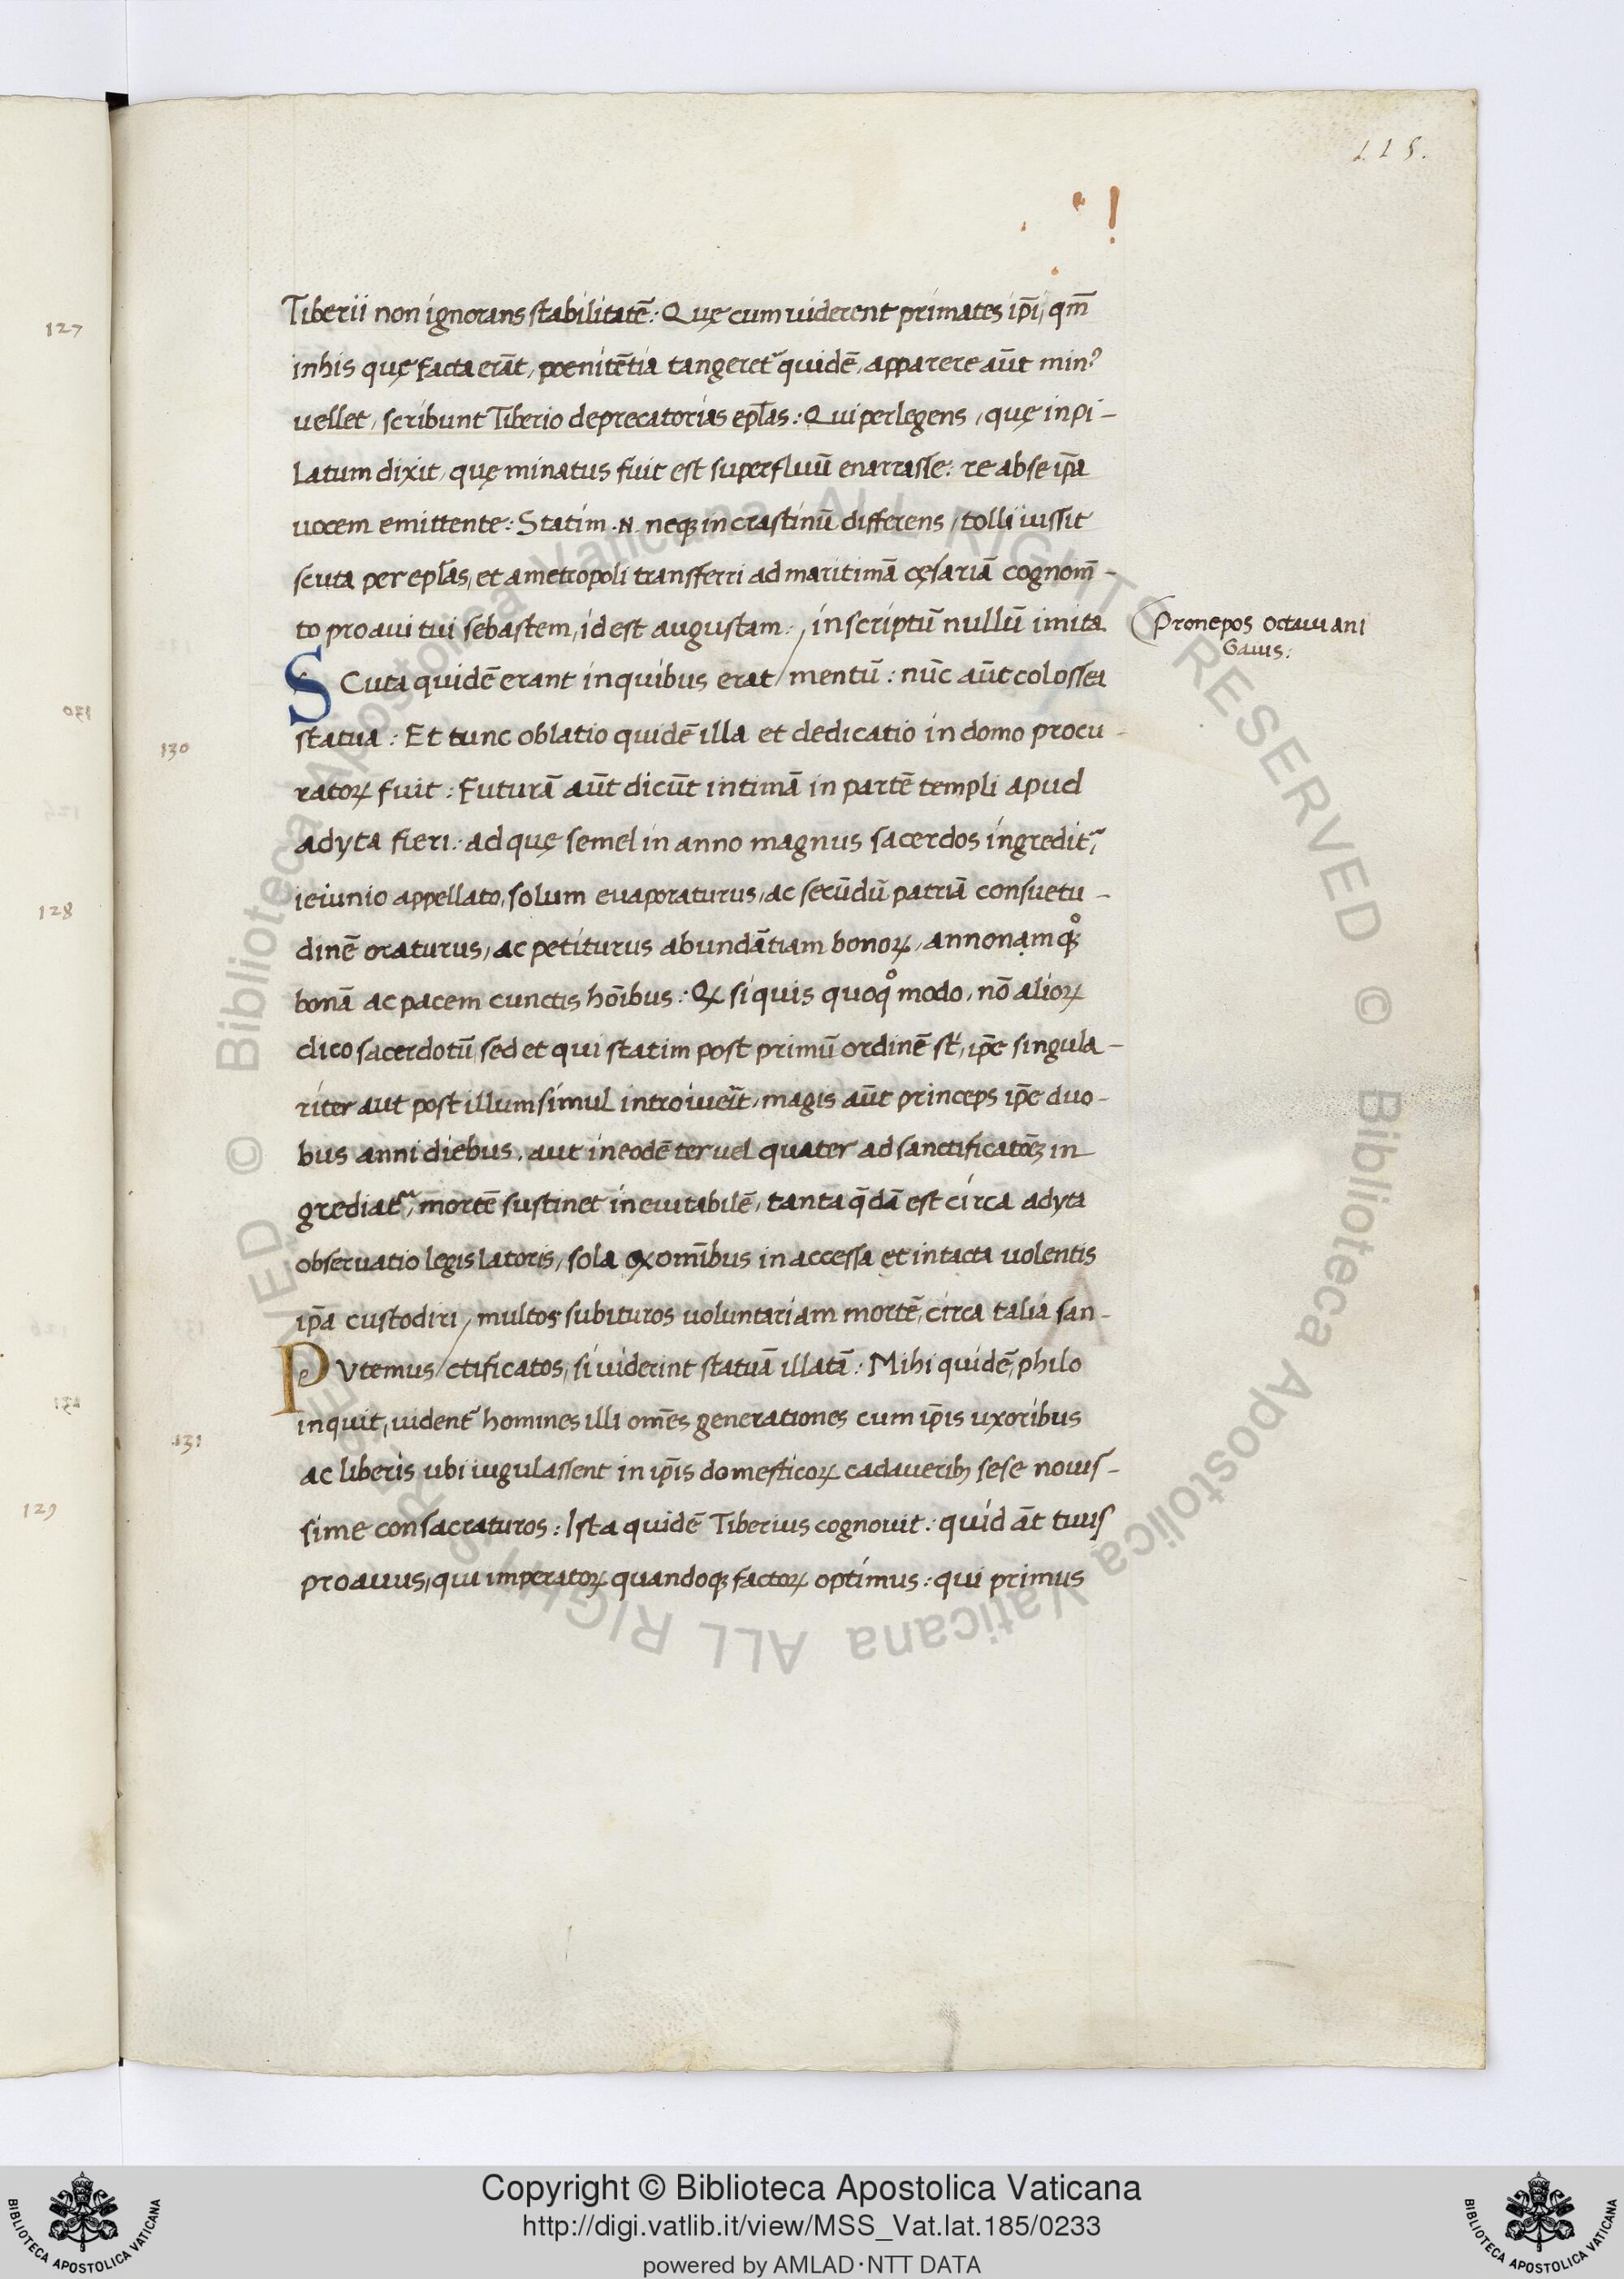 115.
Tiberii non ignorans stabilitatē: Quę cum uiderent primates ip̄i, qm̄
in his quę facta erāt, poenitētia tangeret᷑ quidē, apparere aūt minꝰ
uellet, scribunt Tiberio deprecatorias epl̄as: Qui perlegens, quę in pi-
latum dixit, quę minatus fuit est superfluū enarrasse: re ab se ip̄a
uocem emittente: Statim .N. neqꝫ in crastinū differens, tolli iussit
scuta per epl̄as, et a metropoli transferri ad maritimā cęsariā cognom̄-
to proaui tui sebastem, id est augustam: / inscriptū nullū imita
Pronepos octauiani
Gaius:
SCuta quidē erant in quibus erat / mentū: nūc aūt colossea
statua: Et tunc oblatio quidē illa et dedicatio in domo procu-
ratoꝝ fuit: Futurā aūt dicūt intimā in partē templi apud
adyta fieri: ad quę semel in anno magnus sacerdos ingredit᷑,
ieiunio appellato, solum euaporaturus, ac secūdū patriā consuetu-
dinē oraturus, ac petiturus abundātiam bonoꝝ, annonamqꝫ
bonā ac pacem cunctis hoībus: Qꝫ si quis quoqͦ modo, nō alioꝝ
dico sacerdotū, sed et qui statim post primū ordinē st̄, ip̄e singula-
riter aut post illum simul introiueīt, magis aūt princeps ip̄e duo-
bus anni diebus, aut in eodē ter uel quater ad sanctificatōēꝫ in
grediat᷑, mortē sustinet ineuitabilē, tanta q̄dā est circa adyta
obseruatio legislatoris, sola ex omībus inaccessa et intacta uolentis
ip̄a custodiri, / multos subituros uoluntariam mortē, circa talia san-
131
PVtemus / ctificatos, si uiderint statuā illatā: Mihi quidē, philo
inquit, uident᷑ homines illi om̄es generationes cum ip̄is uxoribus
ac liberis ubi iugulassent in ip̄is domesticoꝝ cadaueribꝫ sese nouis-
sime consacraturos: Ista quidē Tiberius cognouit: quid āt tuus
proauus, qui imperatoꝝ quandoqꝫ factoꝝ optimus: qui primus
130
127
128
129
Copyright © Biblioteca Apostolica Vaticana
http://digi.vatlib.it/view/MSS_Vat.lat.185/0233
powered by AMLAD·NTT DATA
BIBLIOTECA APOSTOLICA VATICANA
BIBLIOTECA APOSTOLICA VATICANA
© Biblioteca Apostolica Vaticana ALL RIGHTS RESERVED
© Biblioteca Apostolica Vaticana ALL RIGHTS RESERVED